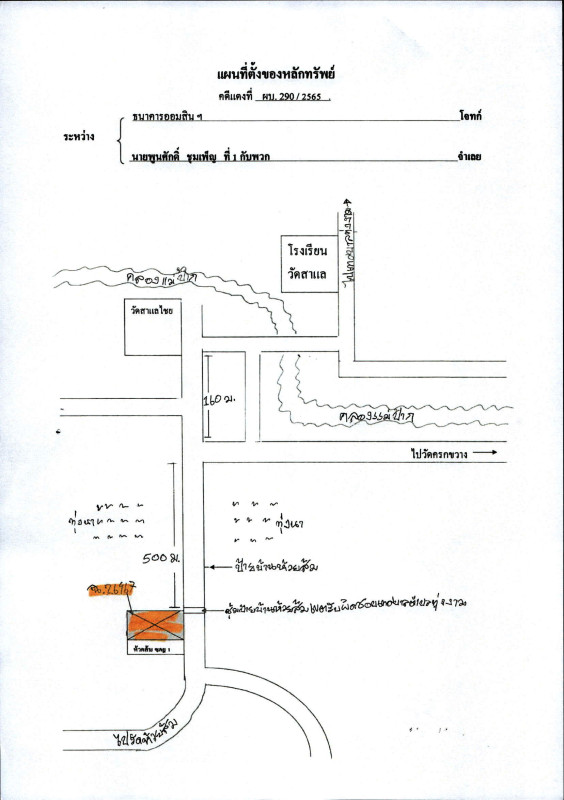 แผนที่ตั้งของหลักทรัพย์
คดีแดงที่ ผบ. 290 / 2565 .
ระหว่าง
ธนาคารออมสิน ฯ โจทก์
นายพูนศักดิ์ ชุมเพ็ญ ที่ 1 กับพวก จำเลย
โรงเรียน
วัดสาแล
คลองแม่ป้าก
วัดสาแลไชย
160 ม.
คลองแม่ป้าก
ไปวัดครกขวาง
ทุ่งนา
ทุ่งนา
500 ม.
ป้ายบ้านห้วยส้ม
ซุ้มป้ายบ้านห้วยส้ม
หัวคลับ
ไปวัดห้วยส้ม